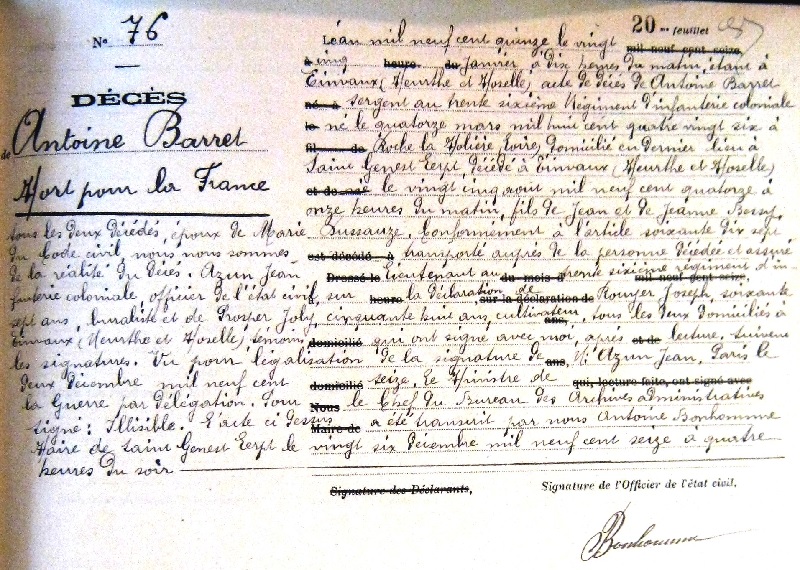 N° 76
20 me feuillet
DÉCÈS
de Antoine Barret
Mort pour la France
L'an mil neuf cent quinze le vingt mil neuf cent seize,
à cinq heure du janvier à dix heures du matin, étant à
Einvaux (Meurthe et Moselle) acte de décès de Antoine Barret
né à sergent au trente sixième régiment d'infanterie coloniale
le né le quatorze mars mil huit cent quatre vingt six à
fil de Roche la Molière, Loire, domicilié en dernier lieu à
Saint Genest Lerpt décédé à Einvaux (Meurthe et Moselle)
et de le vingt cinq aout mil neuf cent quatorze à
onze heures du matin, fils de Jean et de Jeanne Bessy,
tous les deux décédés, époux de Marie Bussauze. Conformément à l'article soixante dix sept
du Code civil, nous nous sommes est décédé à transporté auprès de la personne décédée et assuré
de la réalité du décès. Azun Jean Dressé le lieutenant au du mois trente sixième régiment d'in-
mil neuf cent seize
fanterie coloniale, officier de l'état civil, sur heure la déclaration de sur la déclaration de Rouyer Joseph soixante
sept ans, buraliste et de Prosper Joly, cinquante huit ans, cultivateur ans, tous les deux domiciliés à
Einvaux (Meurthe et Moselle) témoins domicilié qui ont signé avec moi, après et de lecture, suivent
les signatures. Vu pour légalisation de la signature de ans, M. Azun Jean, Paris le
deux décembre mil neuf cent domicilié seize. Le Ministre de qui, lecture faite, ont signé avec
la Guerre par délégation. Pour Nous le Chef du Bureau des Archives administratives
signé: Illisible. L'acte ci dessus Maire de a été transcrit par nous Antoine Bonhomme
Maire de Saint Genest Lerpt le vingt six décembre mil neuf cent seize à quatre
heures du soir
Signature des Déclarants,
Signature de l'Officier de l'état civil,
Bonhomme